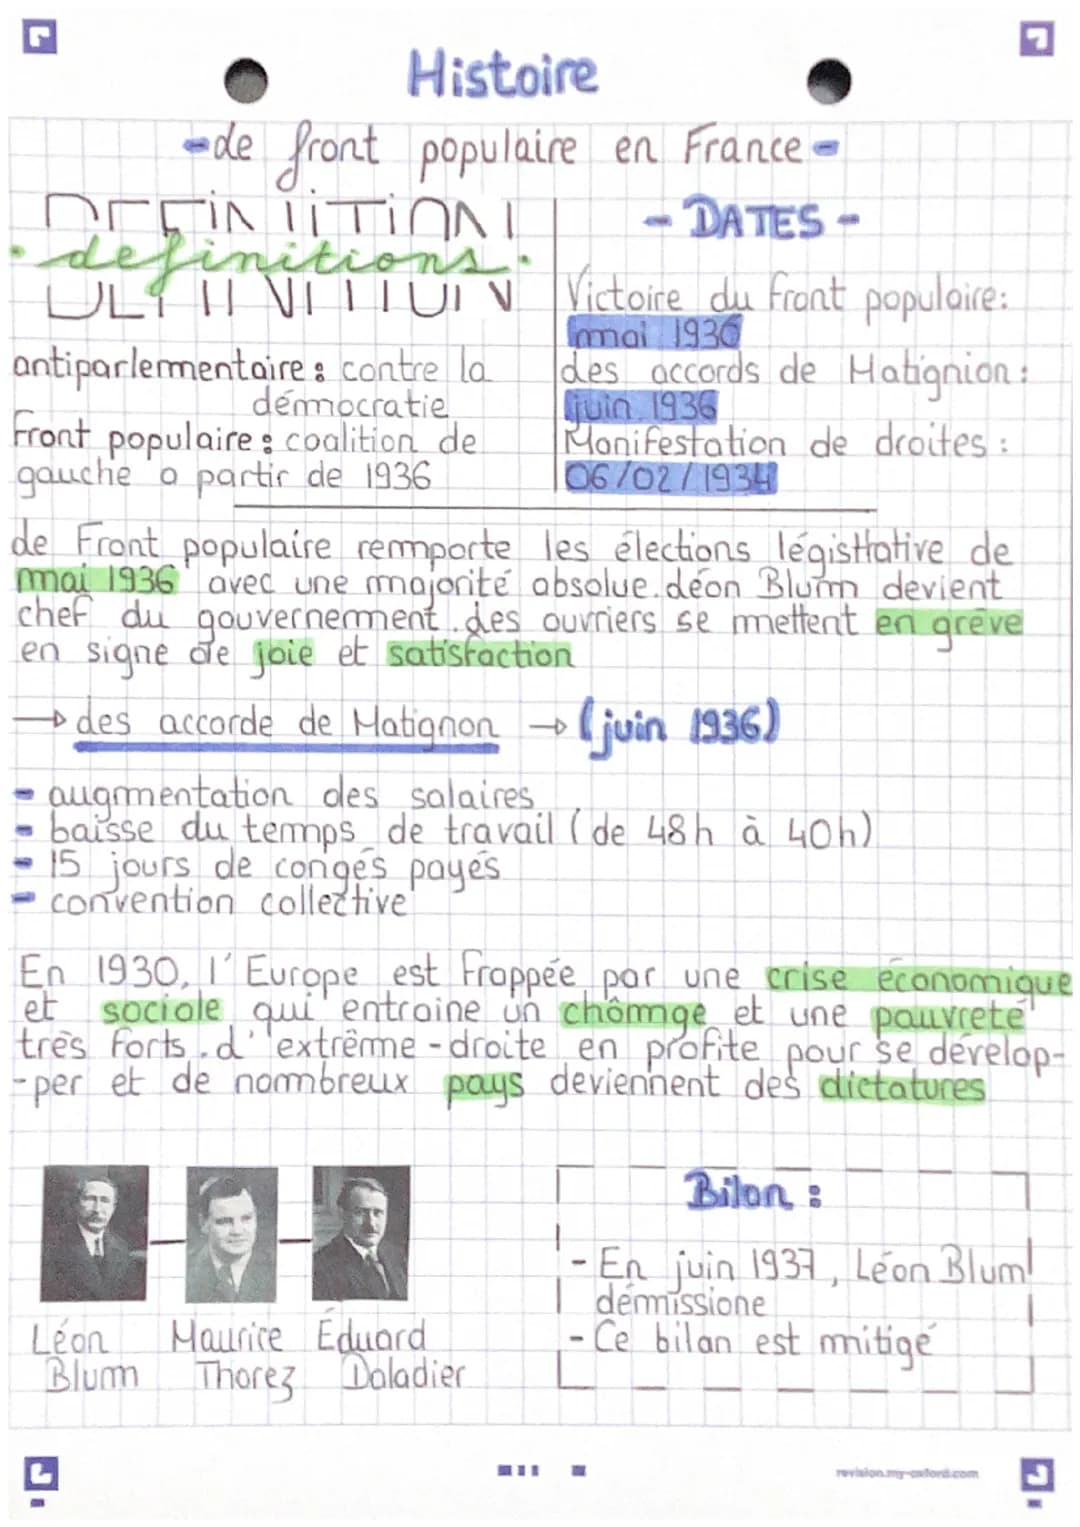 Histoire
-de front populaire en France-
DEFINITION
• definitions.
antiparlementaire : contre la
démocratie
Front populaire : coalition de
gauche a partir de 1936
- DATES -
Victoire du Front populaire:
mai 1936
des accords de Matignion :
juin 1936
Manifestation de droites :
06/02/1934
de Front populaire remporte les élections législative de
mai 1936 avec une majorité absolue. déon Blum devient
chef du gouvernement. des ouvriers se mettent en grève
en signe de joie et satisfaction
→ des accorde de Matignon → (juin 1936)
- augmentation des salaires
- baisse du temps de travail (de 48h à 40h)
- 15 jours de congés payés
- convention collective
En 1930, l'Europe est Frappée par une crise économique
et sociale qui entraine un chômge et une pauvreté
très forts. d'extrême-droite en profite pour se dévelop-
-per et de nombreux pays deviennent des dictatures
Léon Maurice Éduard
Blum Thorez Daladier
Bilan :
- En juin 1937, Léon Blum
démissione
- Ce bilan est mitigé
revision.my-oxford.com